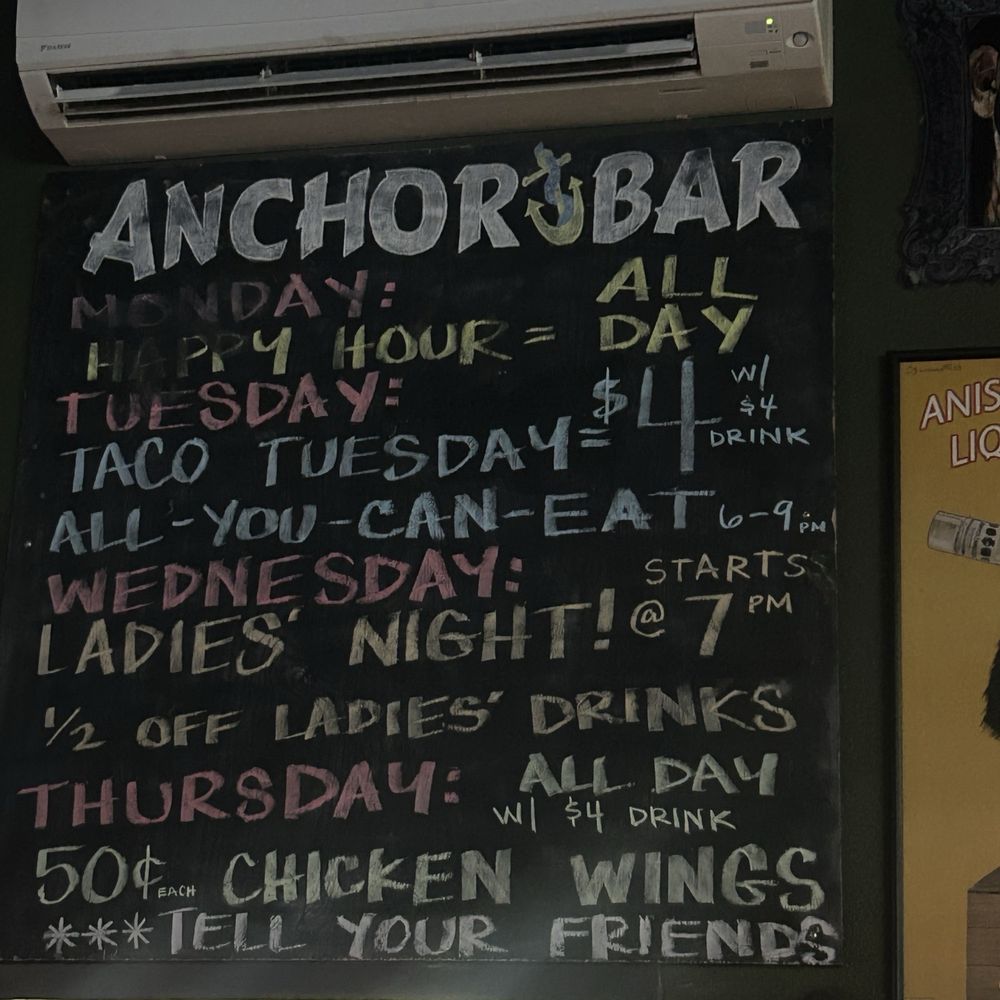 DAIKIN
ANCHOR BAR
MONDAY: ALL
HAPPY HOUR = DAY
TUESDAY:
TACO TUESDAY = $4 W/ $4 DRINK
ALL-YOU-CAN-EAT 6-9PM
WEDNESDAY: STARTS
LADIES' NIGHT! @ 7PM
1/2 OFF LADIES' DRINKS
THURSDAY: ALL DAY
W/ $4 DRINK
50¢ EACH CHICKEN WINGS
***TELL YOUR FRIENDS
ANIS
LIQ